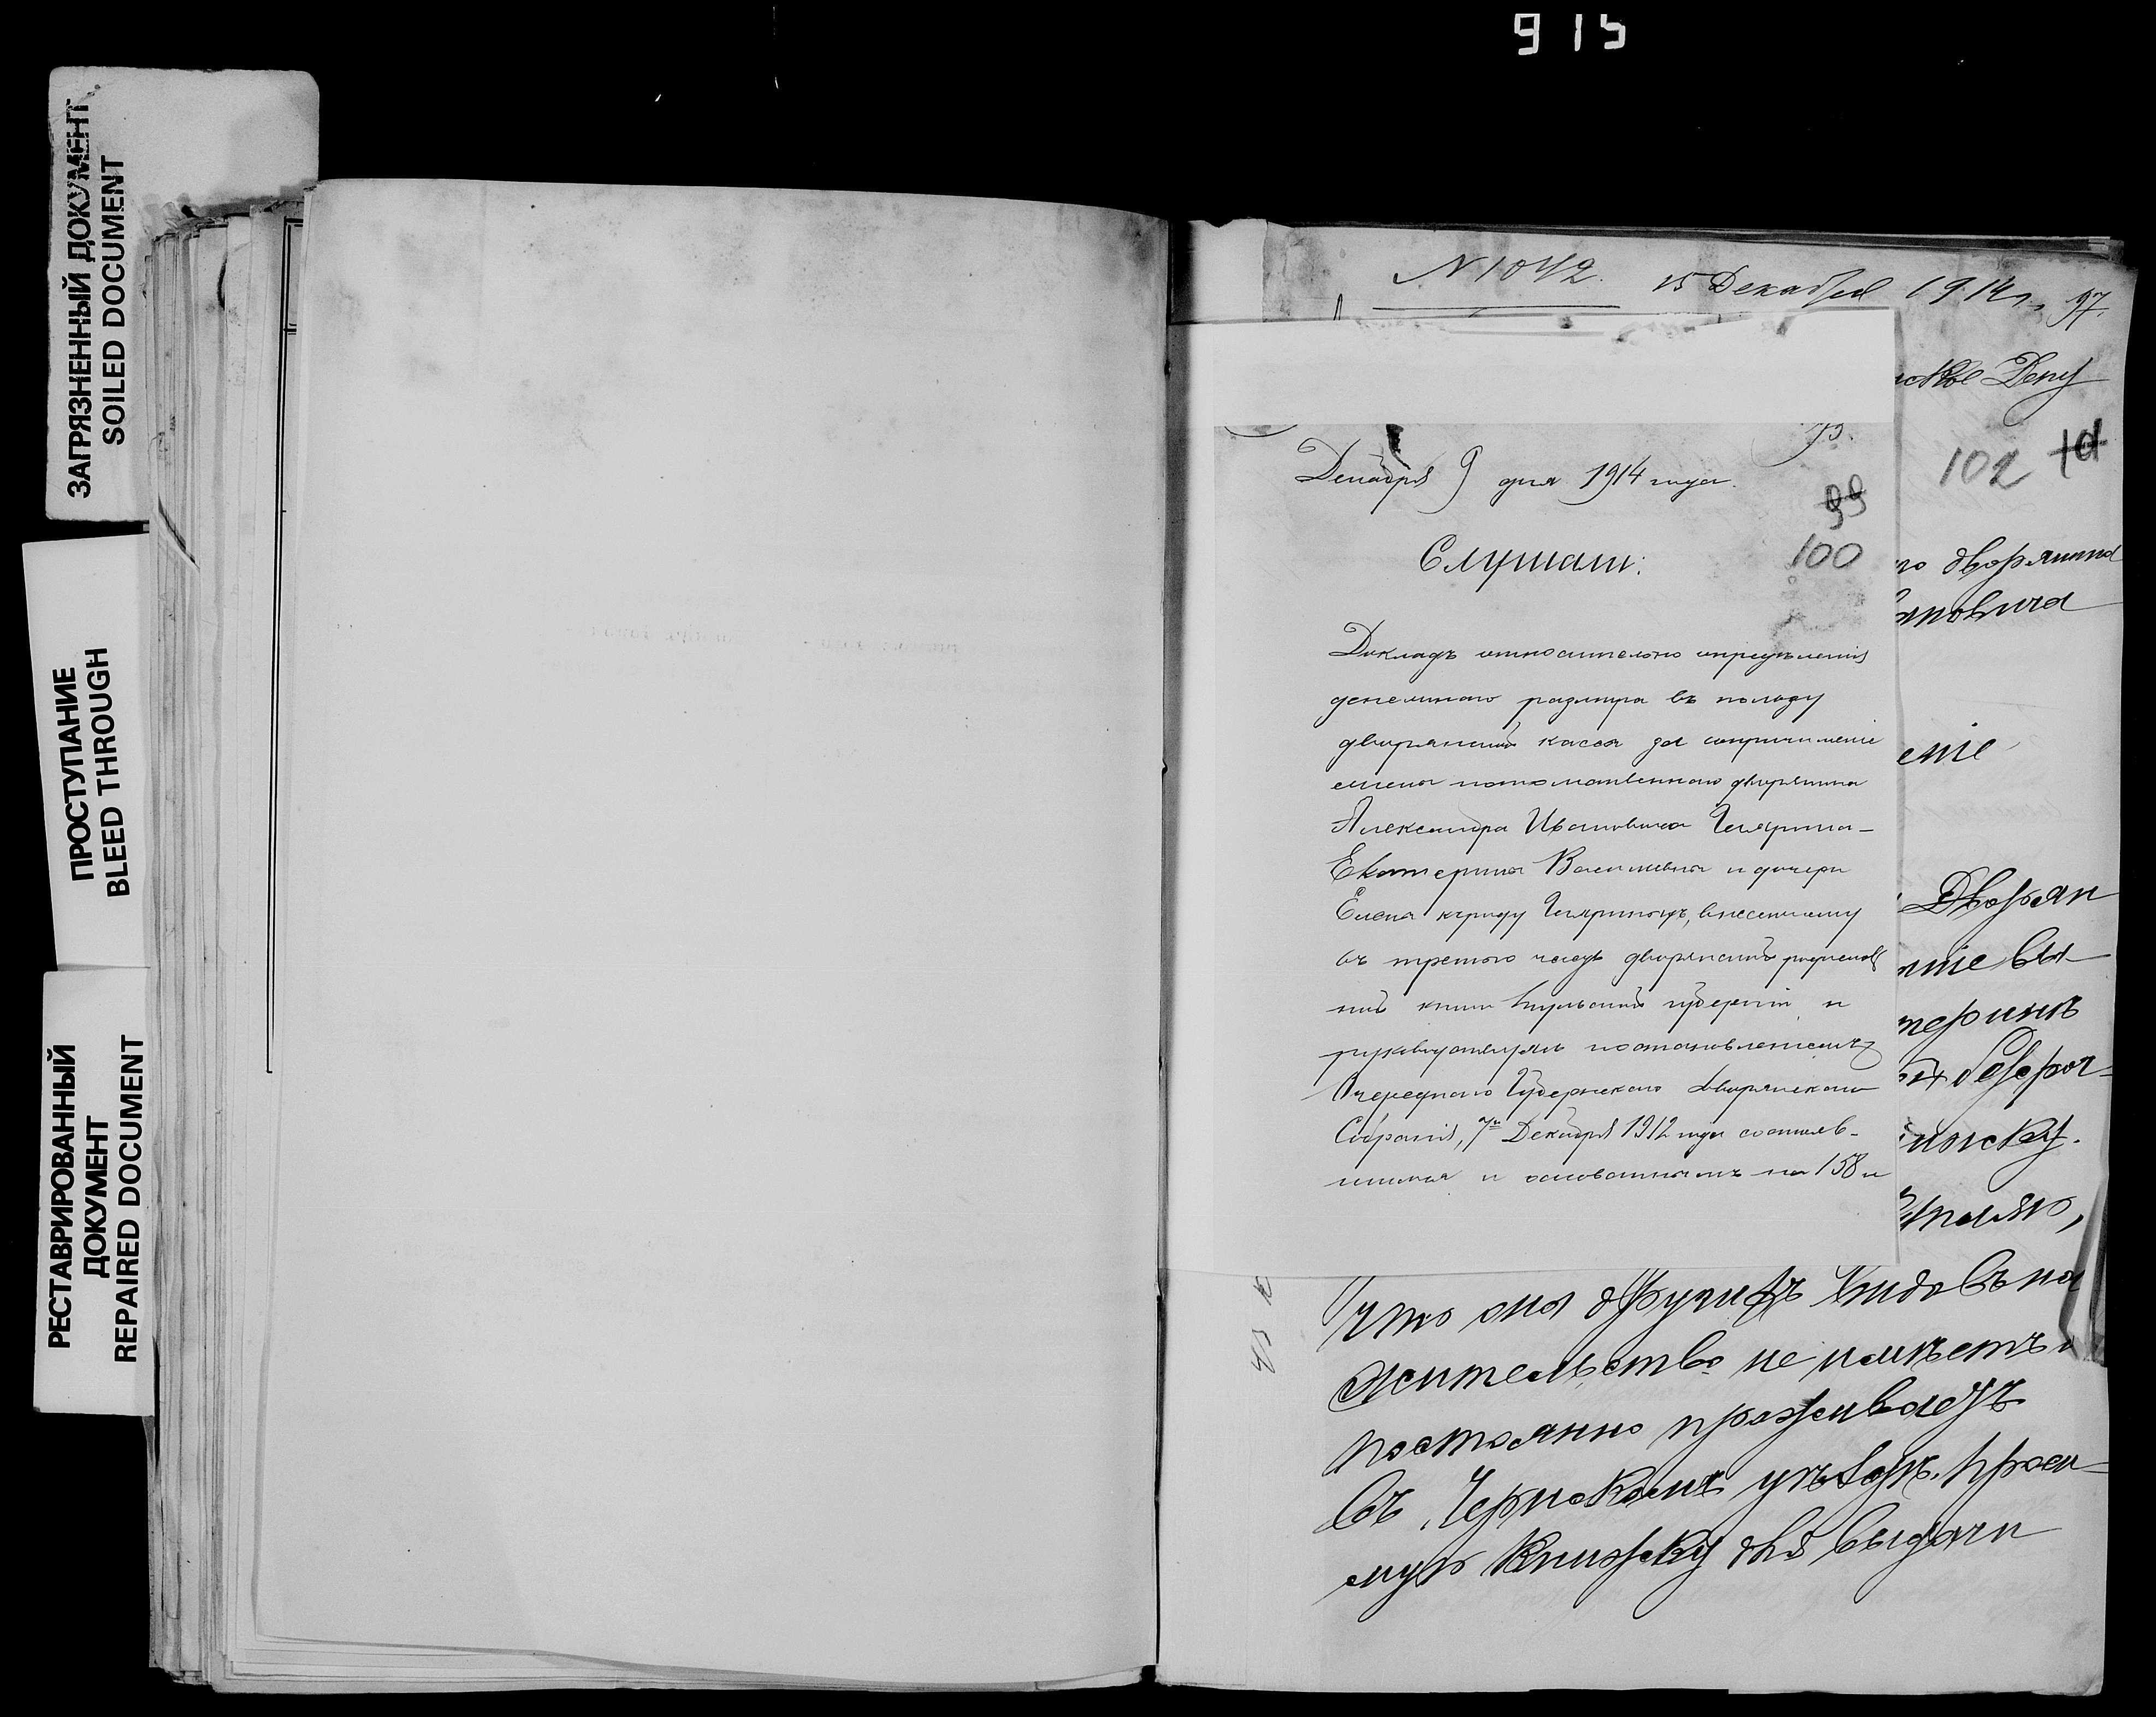 915
ЗАГРЯЗНЕННЫЙ ДОКУМЕНТ
SOILED DOCUMENT
ПРОСТУПАНИЕ
BLEED THROUGH
РЕСТАВРИРОВАННЫЙ
ДОКУМЕНТ
REPAIRED DOCUMENT
N 1042. 15 Декабря 1914 г. 97.
ское Депу
102
Декабря 9 дня 1914 года.
99
100
Слушали:
Докладъ относительно опредѣленія
денежнаго размѣра въ пользу
дворянской кассы за сопричисленіе
жены потомственнаго дворянина
Александра Ивановича
Екатерины Васильевны и дочери
Елены къ роду внесенному
въ третью часть дворянской родослов
ной книги Тульской губерніи и
руководствуясь постановленіемъ
Очереднаго Губернскаго Дворянскаго
Собранія, 7го Декабря 1912 года состояв-
шимся и основаннымъ на 158 и
го дворянина
ановича
еніе
Дворян
ніе вы-
терине
безсроч-
нижку.
что она другихъ видовъ на
жительство не имѣетъ и
постоянно проживаетъ
въ Чернскомъ уѣздѣ. Проси-
мую книжку для выдачи